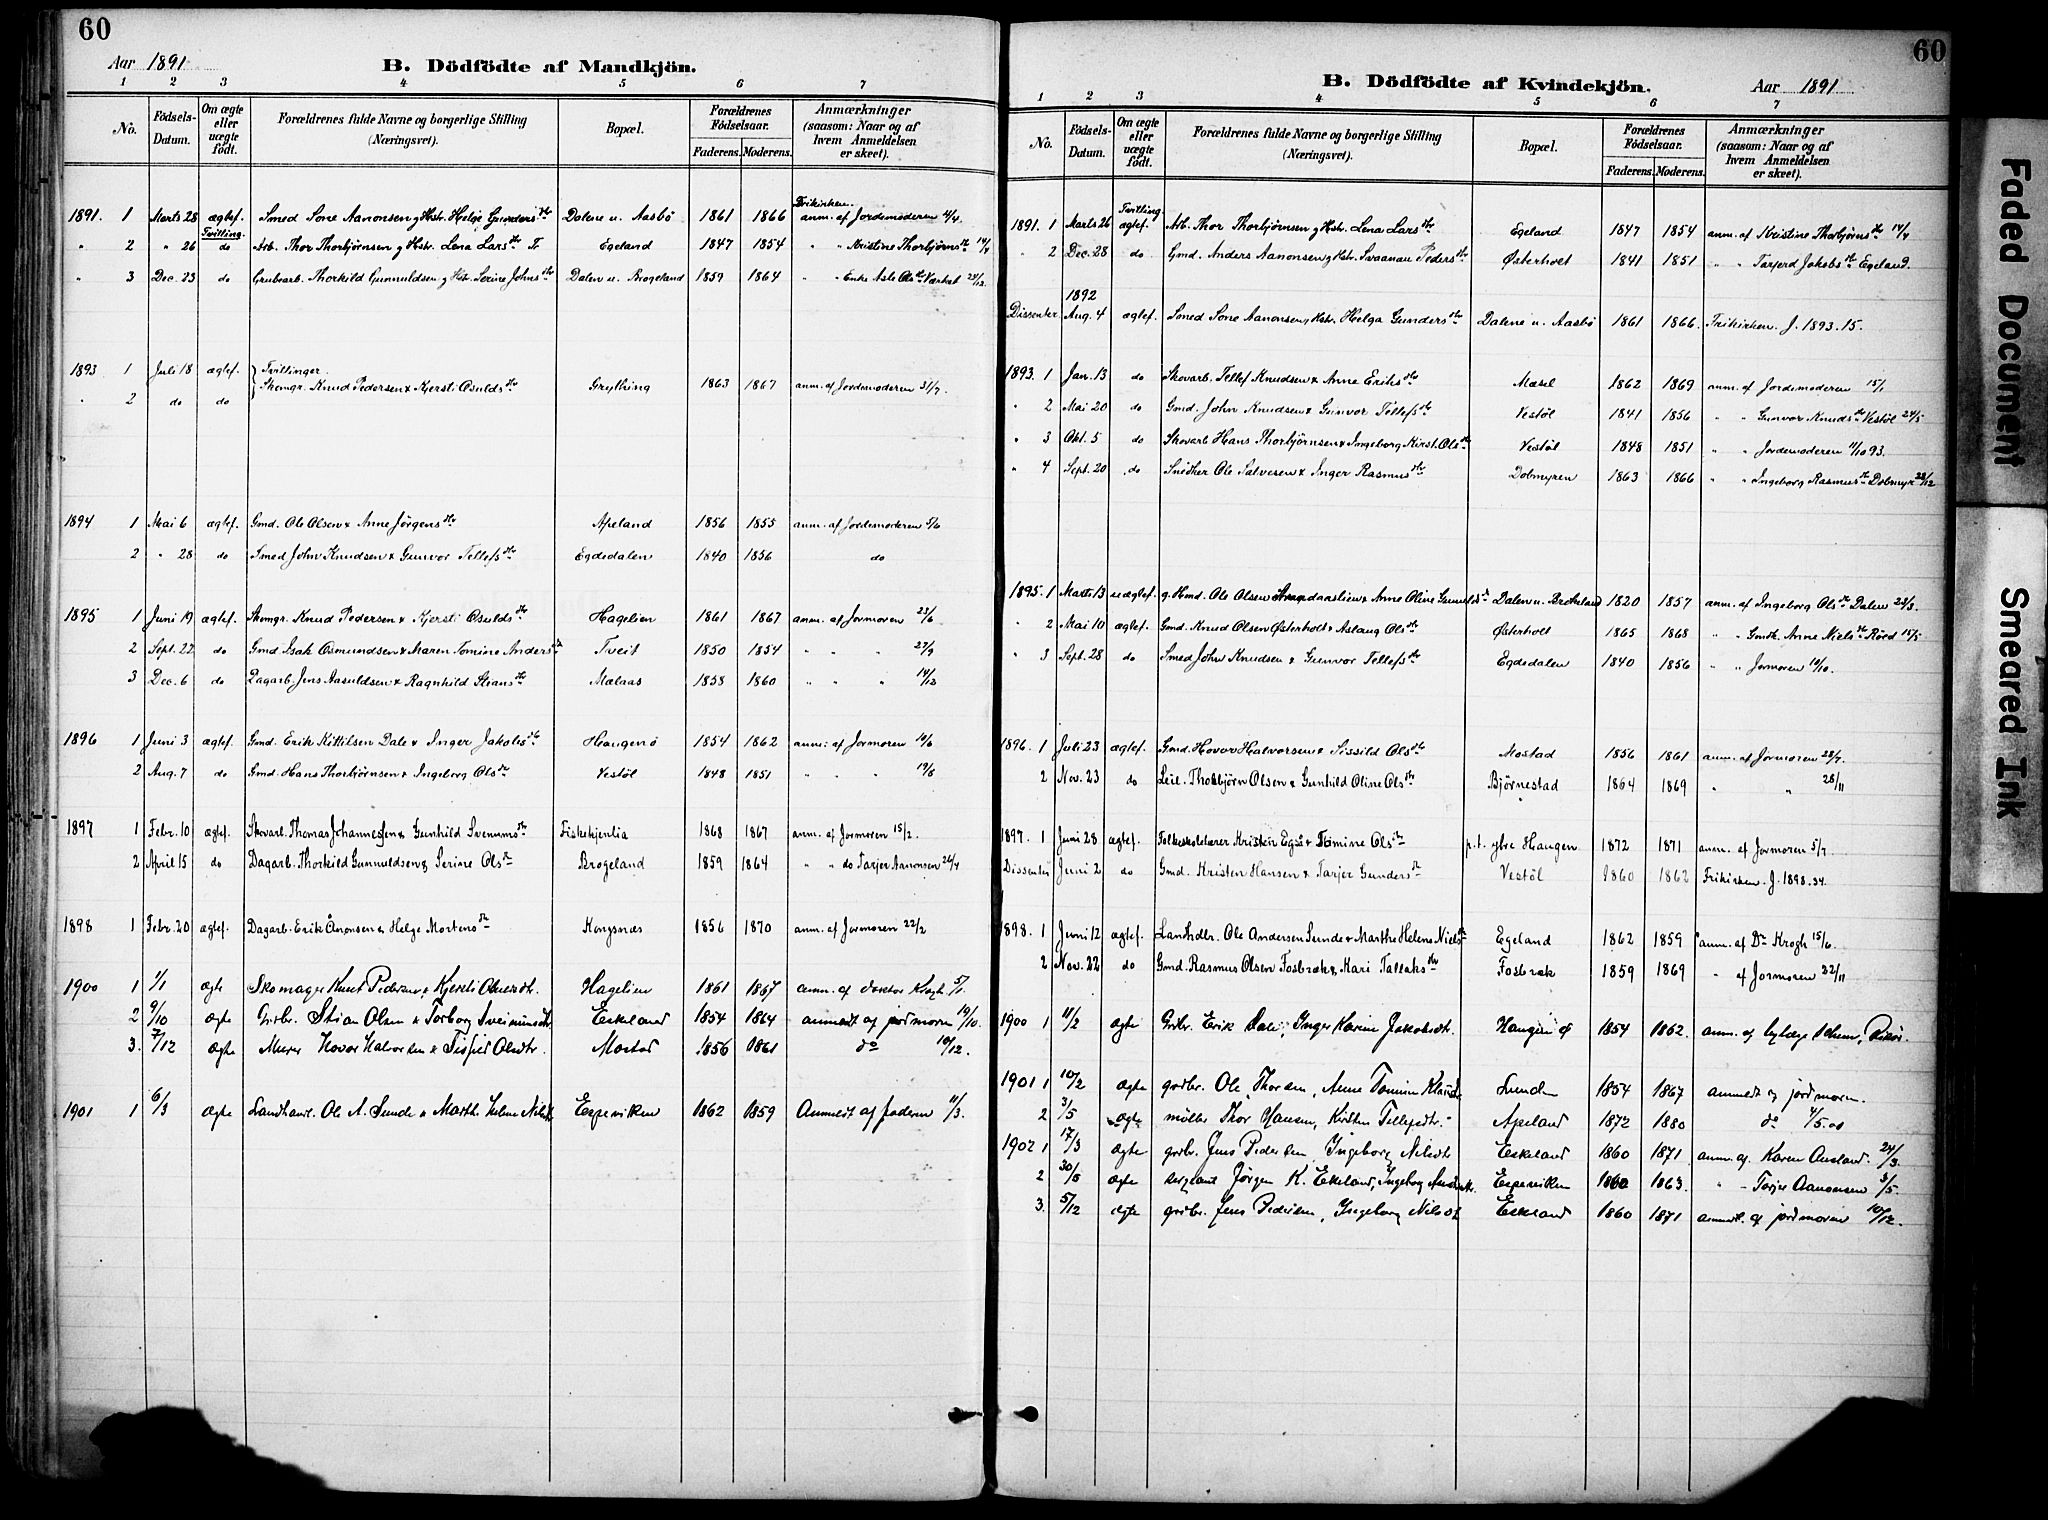 60
Aar 1891
B. Dödfödte af Mandkjön.
1 2 3 4 5 6 7
No. Födsels-Datum. Om ægte eller uægte födt. Forældrenes fulde Navne og borgerlige Stilling (Næringsvei). Bopæl. Forældrenes Födselsaar. Faderens. Moderens. Anmærkninger (saasom: Naar og af hvem Anmeldelsen er skeet).
Frikirken.
1891. 1 Marts 28 ægtef. Smed Sone Aanonsen g Hstr. Helge Gunders dtr Dalene u. Aasbö 1861 1866 anm. af Jordemoderen 4/4
Tvilling
" 2 " 26 do Arb. Thor Thorbjørnsen g Hstr. Lena Lars dtr Fr. Egeland 1847 1854 " " Kristine Thorbjørns dtr 14/4
" 3 Dec. 23 do Grubearb. Thorkild Gunnuldsen g Hstr. Serine Johns dtr Dalen u. Brogeland 1859 1864 " " Enke Asle Ols dtr Værket 29/12
1893 1 Juli 18 ægtef. Tvillinger
Skomgr. Knud Pedersen & Kjersti Osulds dtr Grylting 1863 1867 anm. af Jordemoderen 31/7.
" 2 do do
1894 1 Mai 6 ægtef. Gmd. Ole Olsen & Anne Jörgens dtr Apeland 1856 1855 anm. af Jordemoderen 5/6
2 " 28 do Smed John Knudsen & Gunvor Tellefs dtr Egdedalen 1840 1856 do
1895 1 Juni 19 ægtef. Skomgr. Knud Pedersen & Kjersti Osulds dtr Hagelien 1861 1867 anm. af Jormoren 23/6
2 Sept. 22 do Gmd Isak Osmundsen & Maren Tomine Anders dtr Tveit 1850 1854 " " " 27/9
3 Dec. 6 do Dagarb. Jens Aasuldsen & Ragnhild Stians dtr Mælaas 1858 1860 " " " 14/12
1896 1 Juni 3 ægtef. Gmd. Erik Kittilsen Dale & Inger Jakobs dtr Haugenö 1854 1862 anm. af Jormoren 10/6
2 Aug. 7 do Gmd. Hans Thorbjørnsen & Ingeborg Ols dtr Vestöl 1848 1851 " " " 19/8
1897 1 Febr. 10 ægtef. Skovarb. Thomas Johannesen & Gunhild Svenums dtr Fiskekjenlia 1868 1867 anm. af Jormoren 15/2.
2 April 15 do Dagarb. Thorkild Gunnuldsen & Serine Ols dtr Brogeland 1859 1864 " " do Tarjer Aanonsen 26/4
1898 1 Febr. 20 ægtef. Dagarb. Erik Ånonsen & Helge Mortens dtr Kongsnæs 1856 1870 anm. af Jormoren 22/2
1900 1 1/1 ægte Skomager Knut Pedersen & Kjersti Osulsdtr. Hagelien 1861 1867 anm. af doktor Krogh 5/1.
2 9/10 ægte Grbr. Stian Olsen & Torborg Sveinunsdtr Eskeland 1854 1864 anmeldt af jordmoren 19/10.
3. 7/12 ægte Murer Hovor Halvorsen & Sissel Olsdtr. Mostad 1856 1861 do 10/12.
1901 1 6/3 ægte Landhand. Ole A. Sunde & Marthe Helene Nilsdt Espeviken 1862 1859 Anmeldt af faderen 11/3.
60
B. Dödfödte af Kvindekjön.
Aar 1891
1 2 3 4 5 6 7
No. Födsels-Datum. Om ægte eller uægte födt. Forældrenes fulde Navne og borgerlige Stilling (Næringsvei). Bopæl. Forældrenes Födselsaar. Faderens. Moderens. Anmærkninger (saasom: Naar og af hvem Anmeldelsen er skeet).
Tvilling
1891. 1 Marts 26 ægtef. Arb. Thor Thorbjørnsen g Hstr. Lena Lars dtr Egeland 1847 1854 anm. af Kristine Thorbjørns dtr 14/4
" 2 Dec. 28 do Gmd. Anders Aanonsen g Hstr. Svaanau Peders dtr Østerholt 1841 1851 " " Tarjerd Jakobs dtr Egeland.
1892
Dissenter Aug. 4 ægtef. Smed Sone Aanonsen, Hstr. Helga Gunders dtr Dalene u. Aasbö 1861 1866 Frikirken. J. 1893. 15.
1893. 1 Jan. 13 do Skovarb. Tellef Knudsen & Anne Eriks dtr Mæsel 1862 1869 anm. af Jordemoderen 15/1
" 2 Mai 20 do Gmd. John Knudsen & Gunvor Tellefs dtr Vestöl 1841 1856 " " Gunvor Knuds dtr Vestöl 24/5
" 3 Okt. 5 do Skovarb Hans Thorbjörnsen & Ingeborg Kirst. Ols dtr Vestöl 1848 1851 " " Jordemoderen 11/10 93.
" 4 Sept. 20 do Snedker Ole Salvesen & Inger Rasmus dtr Dobmyren 1863 1866 " " Ingeborg Rasmus dtr Dobmyr 28/12
1895. 1 Marts 13 uægtef. g. Kmd. Ole Olsen & Anne Oline Gunulds dtr Dalen u. Brokeland 1820 1857 anm. af Ingeborg Ols dtr Dalen 22/3.
" 2 Mai 10 ægtef. Gmd. Knud Olsen Østerholt & Aslaug Ols dtr Østerholt 1865 1868 " " Gmdk. Anne Niels dtr Röed 15/5
" 3 Sept. 28 do Smed John Knudsen & Gunvor Tellefs dtr Egdedalen 1840 1856 " " Jormoren 10/10.
1896. 1 Juli 23 ægtef. Gmd. Hovor Halvorsen & Sissild Ols dtr Mostad 1856 1861 anm. af Jormoren 28/7.
2 Nov. 23 do Leil. Thorbjörn Olsen & Gunhild Oline Ols dtr Bjørnestad 1864 1869 " " 28/11
1897. 1 Juni 28 ægtef. Folkeskolelærer Kristen Egså & Tomine Ols dtr p.t. ytre Haugen 1872 1871 anm. af Jormoren 5/7
Dissenter Juni 2 do Gmd. Kristen Hansen & Tarjer Gunders dtr Vestöl 1860 1862 Frikirken. J. 1898. 34.
1898. 1 Juni 12 ægtef. Lanthdlr. Ole Andersen Sunde & Marthe Helene Niels dtr Egeland 1862 1859 anm. af Dr Krogh 15/6.
2 Nov. 22 do Gmd. Rasmus Olsen Fosbræk & Kari Tallaks dtr Fosbræk 1859 1869 " af Jormoren 22/11
1900 1 11/2 ægte Grbr. Erik Dale, Inger Karine Jakobsdtr. Haugenø 1854 1862. anm. af bylæge Risör.
1901 1 10/2 ægte grdbr. Ole Thorsen, Anne Tomine Lunden 1854 1867 anmeldt af jordmoren.
2 3/5 ægte möller Thor Hansen, Kirsten Tellefsdtr. Apeland 1872 1880 do 4/5.01
1902 1 17/3 ægte grbr. Jens Pedersen, Ingeborg Nilsdtr Eskeland 1860 1871 anm. af Karen Ausland. 24/3.
2 30/5 ægte sergeant Jörgen K. Eskeland, Ingeborg Espeviken 1860 1863. " - Tarjer Aanonsen 3/5.
3. 5/12 ægte grdbr. Jens Pedersen, Ingeborg Nilsdt Eskeland 1860 1871 anmeldt. af jordmoren 10/12.
Faded Document
Smeared Ink